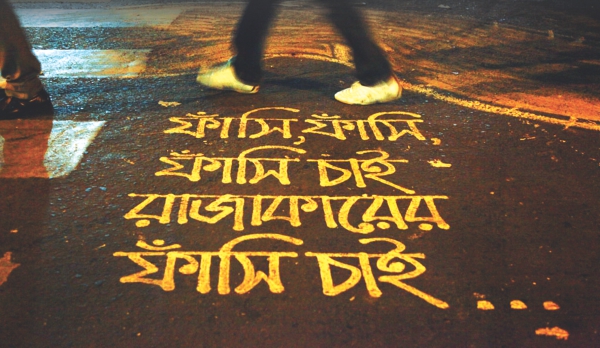 ফাঁসি, ফাঁসি,
ফাঁসি চাই
রাজাকারের
ফাঁসি চাই...